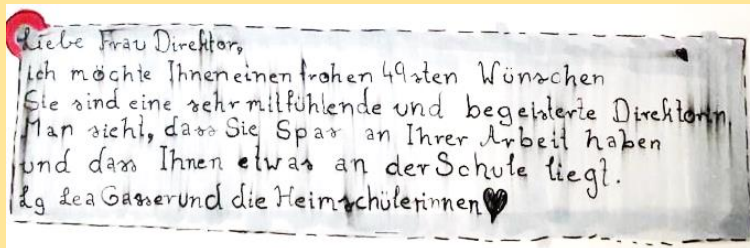 Liebe Frau Direktor,
ich möchte Ihnen einen frohen 49sten Wünschen
Sie sind eine sehr mitfühlende und begeisterte Direktorin,
Man sieht, dass Sie Spas an Ihrer Arbeit haben
und dass Ihnen etwas an der Schule liegt.
Lg Lea Gasser und die Heimschülerinnen♥